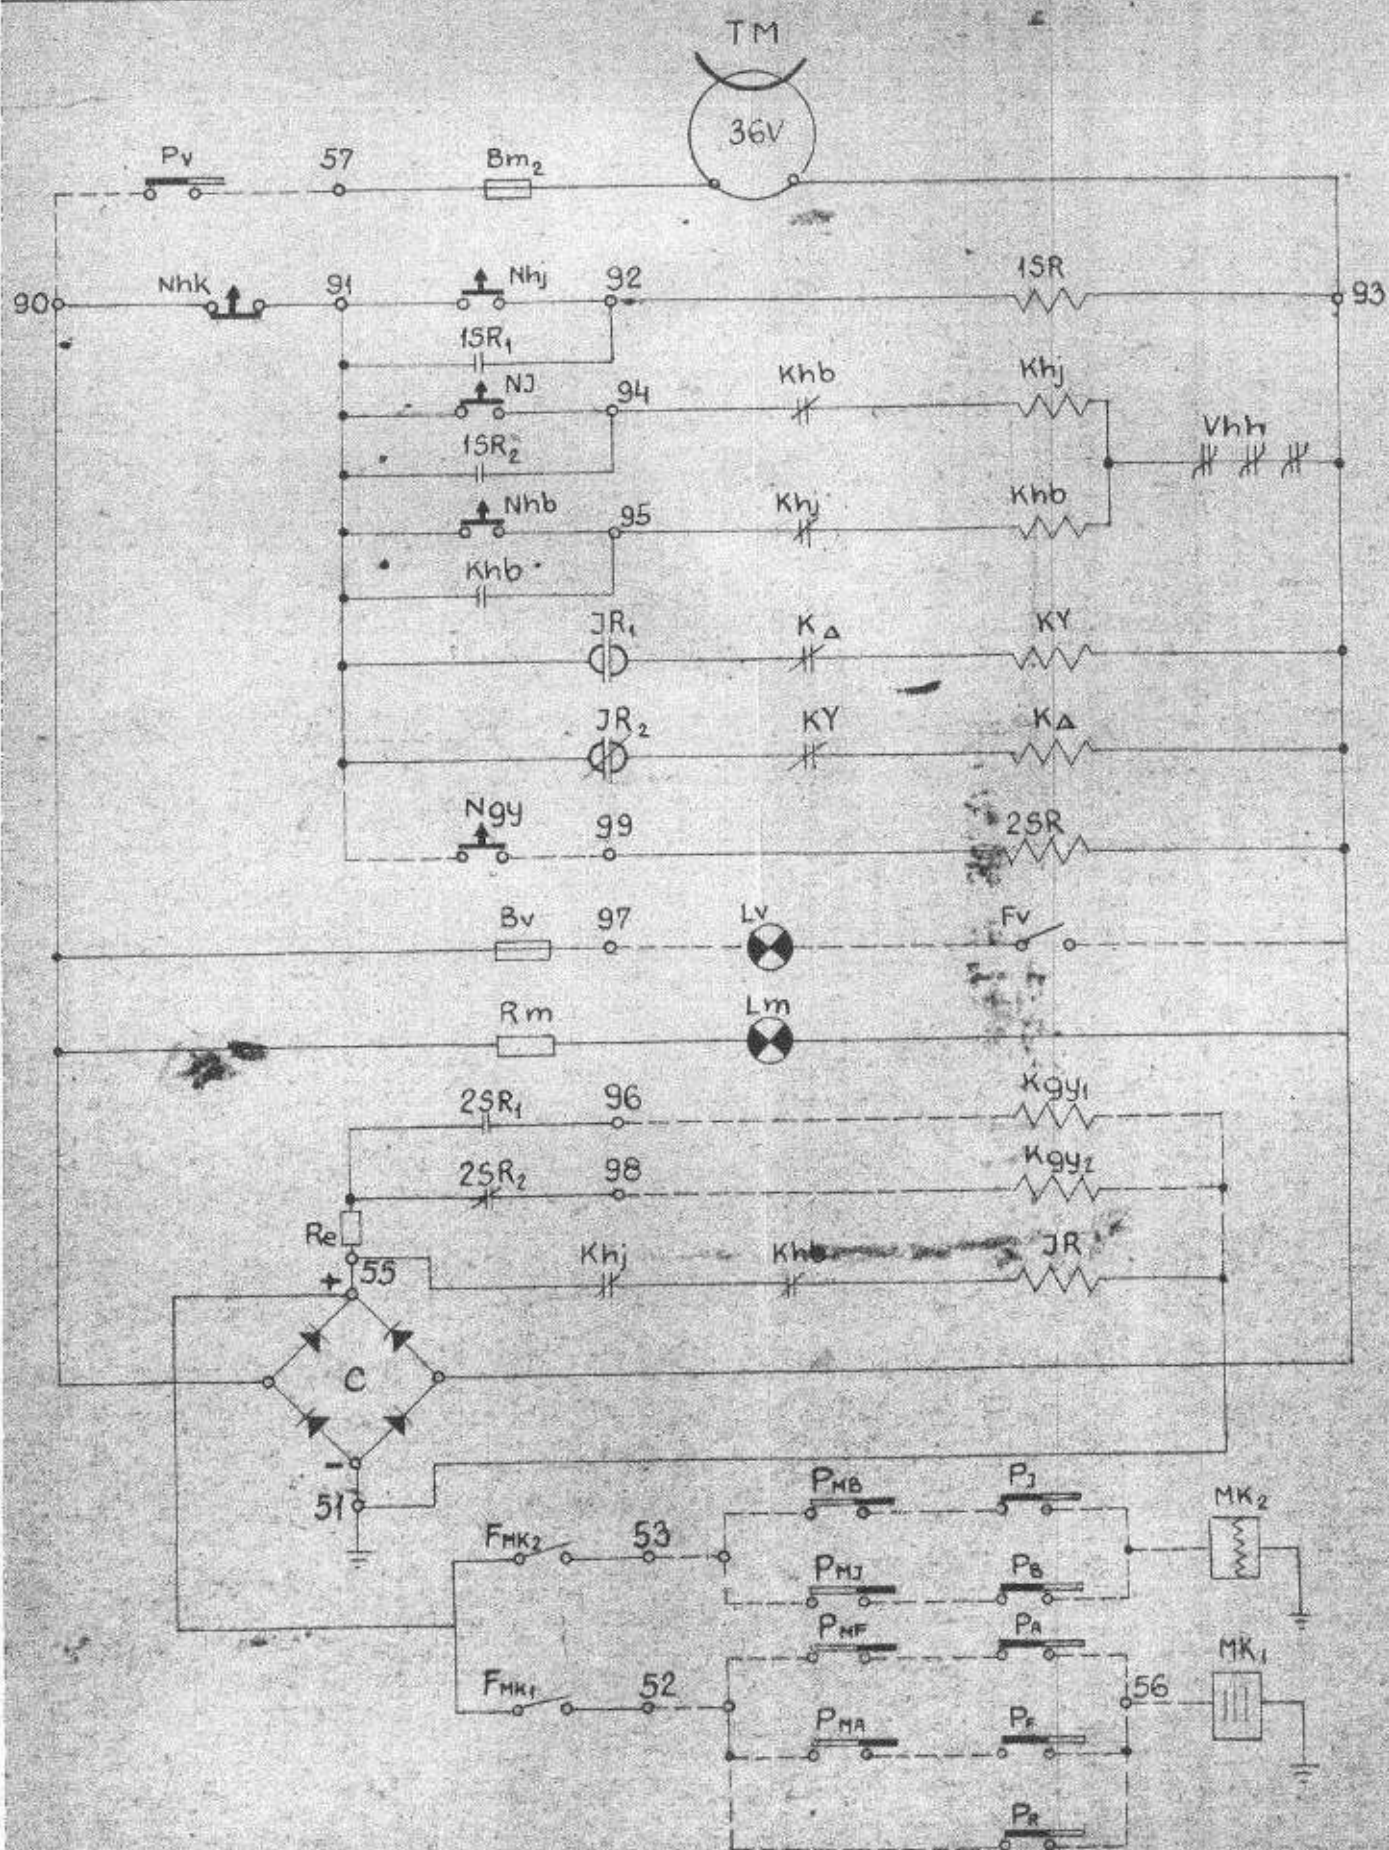 TM
36V
Pv
57
Bm₂
90
Nhk
91
Nhj
92
1SR
93
1SR₁
NJ
94
Khb
Khj
1SR₂
Vhh
Nhb
95
Khj
Khb
Khb
JR₁
K△
KY
JR₂
KY
K△
Ngy
99
2SR
Bv
97
Lv
Fv
Rm
Lm
2SR₁
96
Kgy₁
2SR₂
98
Kgy₂
Re
+
55
Khj
Khb
JR
C
-
51
F MK2
53
P MB
P J
MK₂
P MJ
P B
P MF
P A
F MK1
52
56
MK₁
P MA
P F
P R